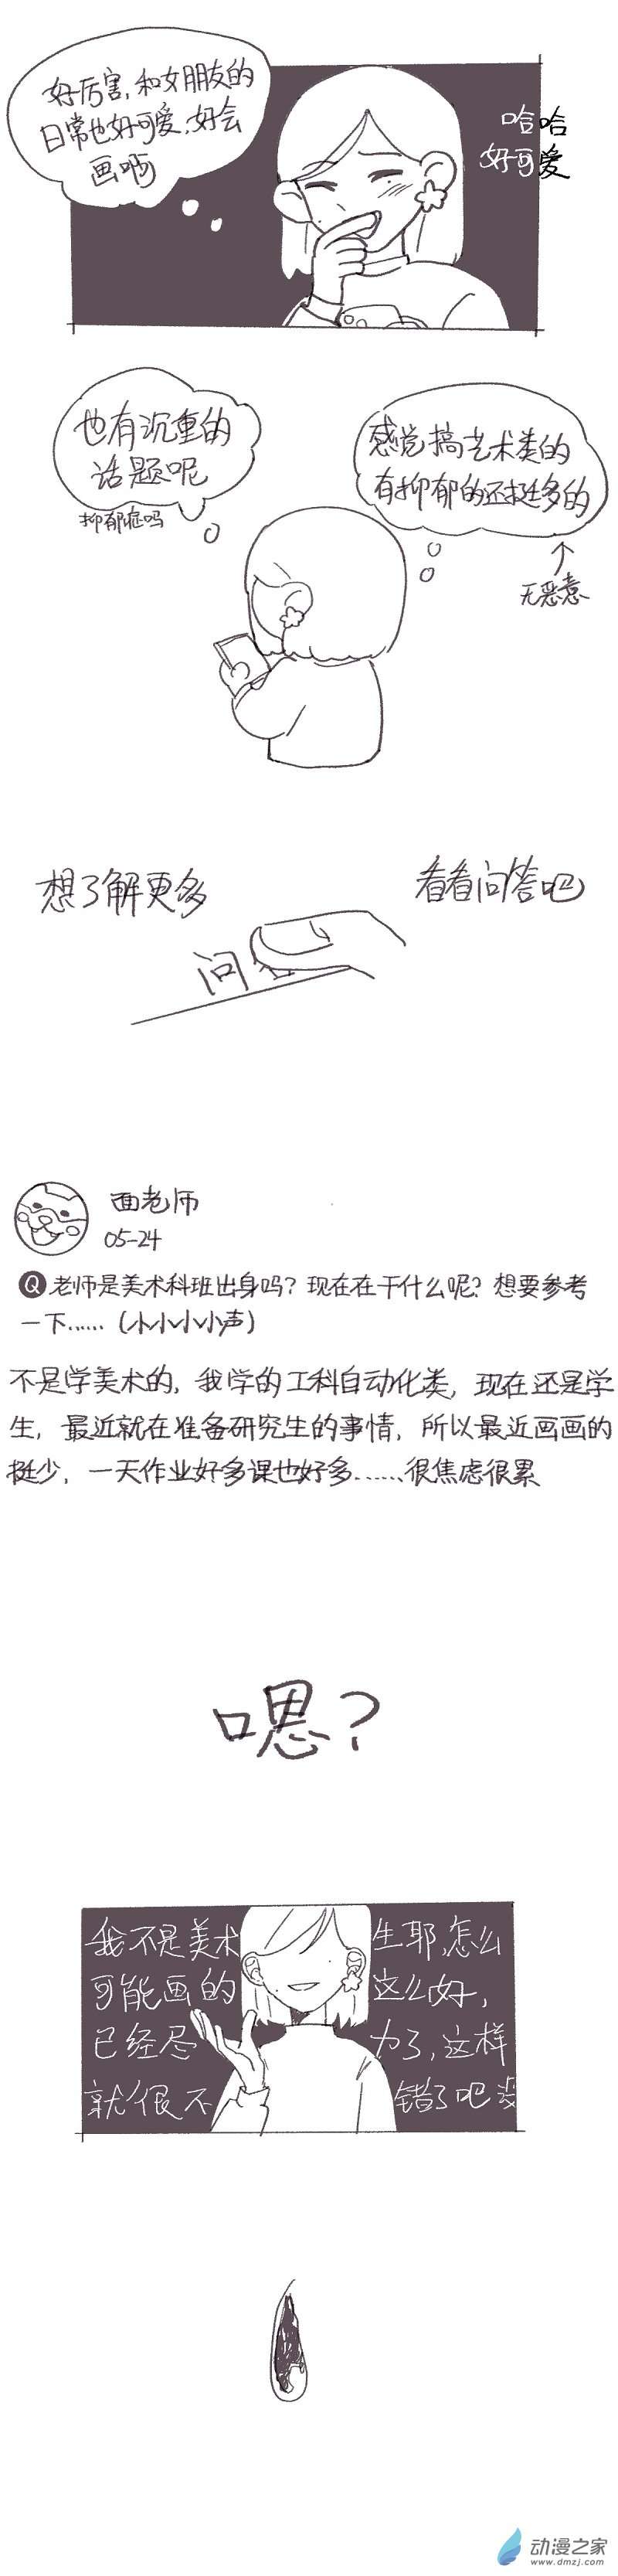 好厉害,和女朋友的
日常也好可爱,好会
画啊
哈哈
好可爱
也有沉重的
话题呢
抑郁症吗
感觉搞艺术类的
有抑郁的还挺多的
无恶意
想了解更多
看看问答吧
问答
面老师
05-24
Q 老师是美术科班出身吗?现在在干什么呢?想要参考
一下……(小小小小声)
不是学美术的,我学的工科自动化类,现在还是学
生,最近就在准备研究生的事情,所以最近画画的
挺少,一天作业好多课也好多……很焦虑很累
嗯?
我不是美术生耶,怎么
可能画的这么好,
已经尽力了,这样
就很不错了吧
动漫之家
www.dmzj.com